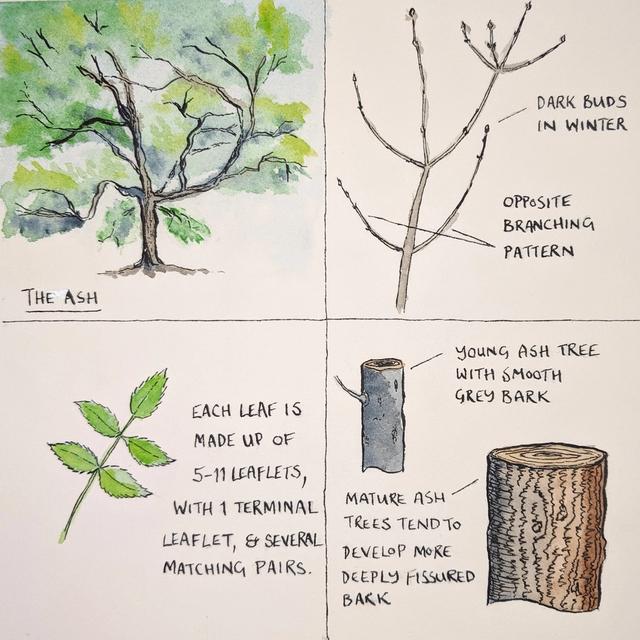 THE ASH
DARK BUDS
IN WINTER
OPPOSITE
BRANCHING
PATTERN
EACH LEAF IS
MADE UP OF
5-11 LEAFLETS,
WITH 1 TERMINAL
LEAFLET, & SEVERAL
MATCHING PAIRS.
YOUNG ASH TREE
WITH SMOOTH
GREY BARK
MATURE ASH
TREES TEND TO
DEVELOP MORE
DEEPLY FISSURED
BARK